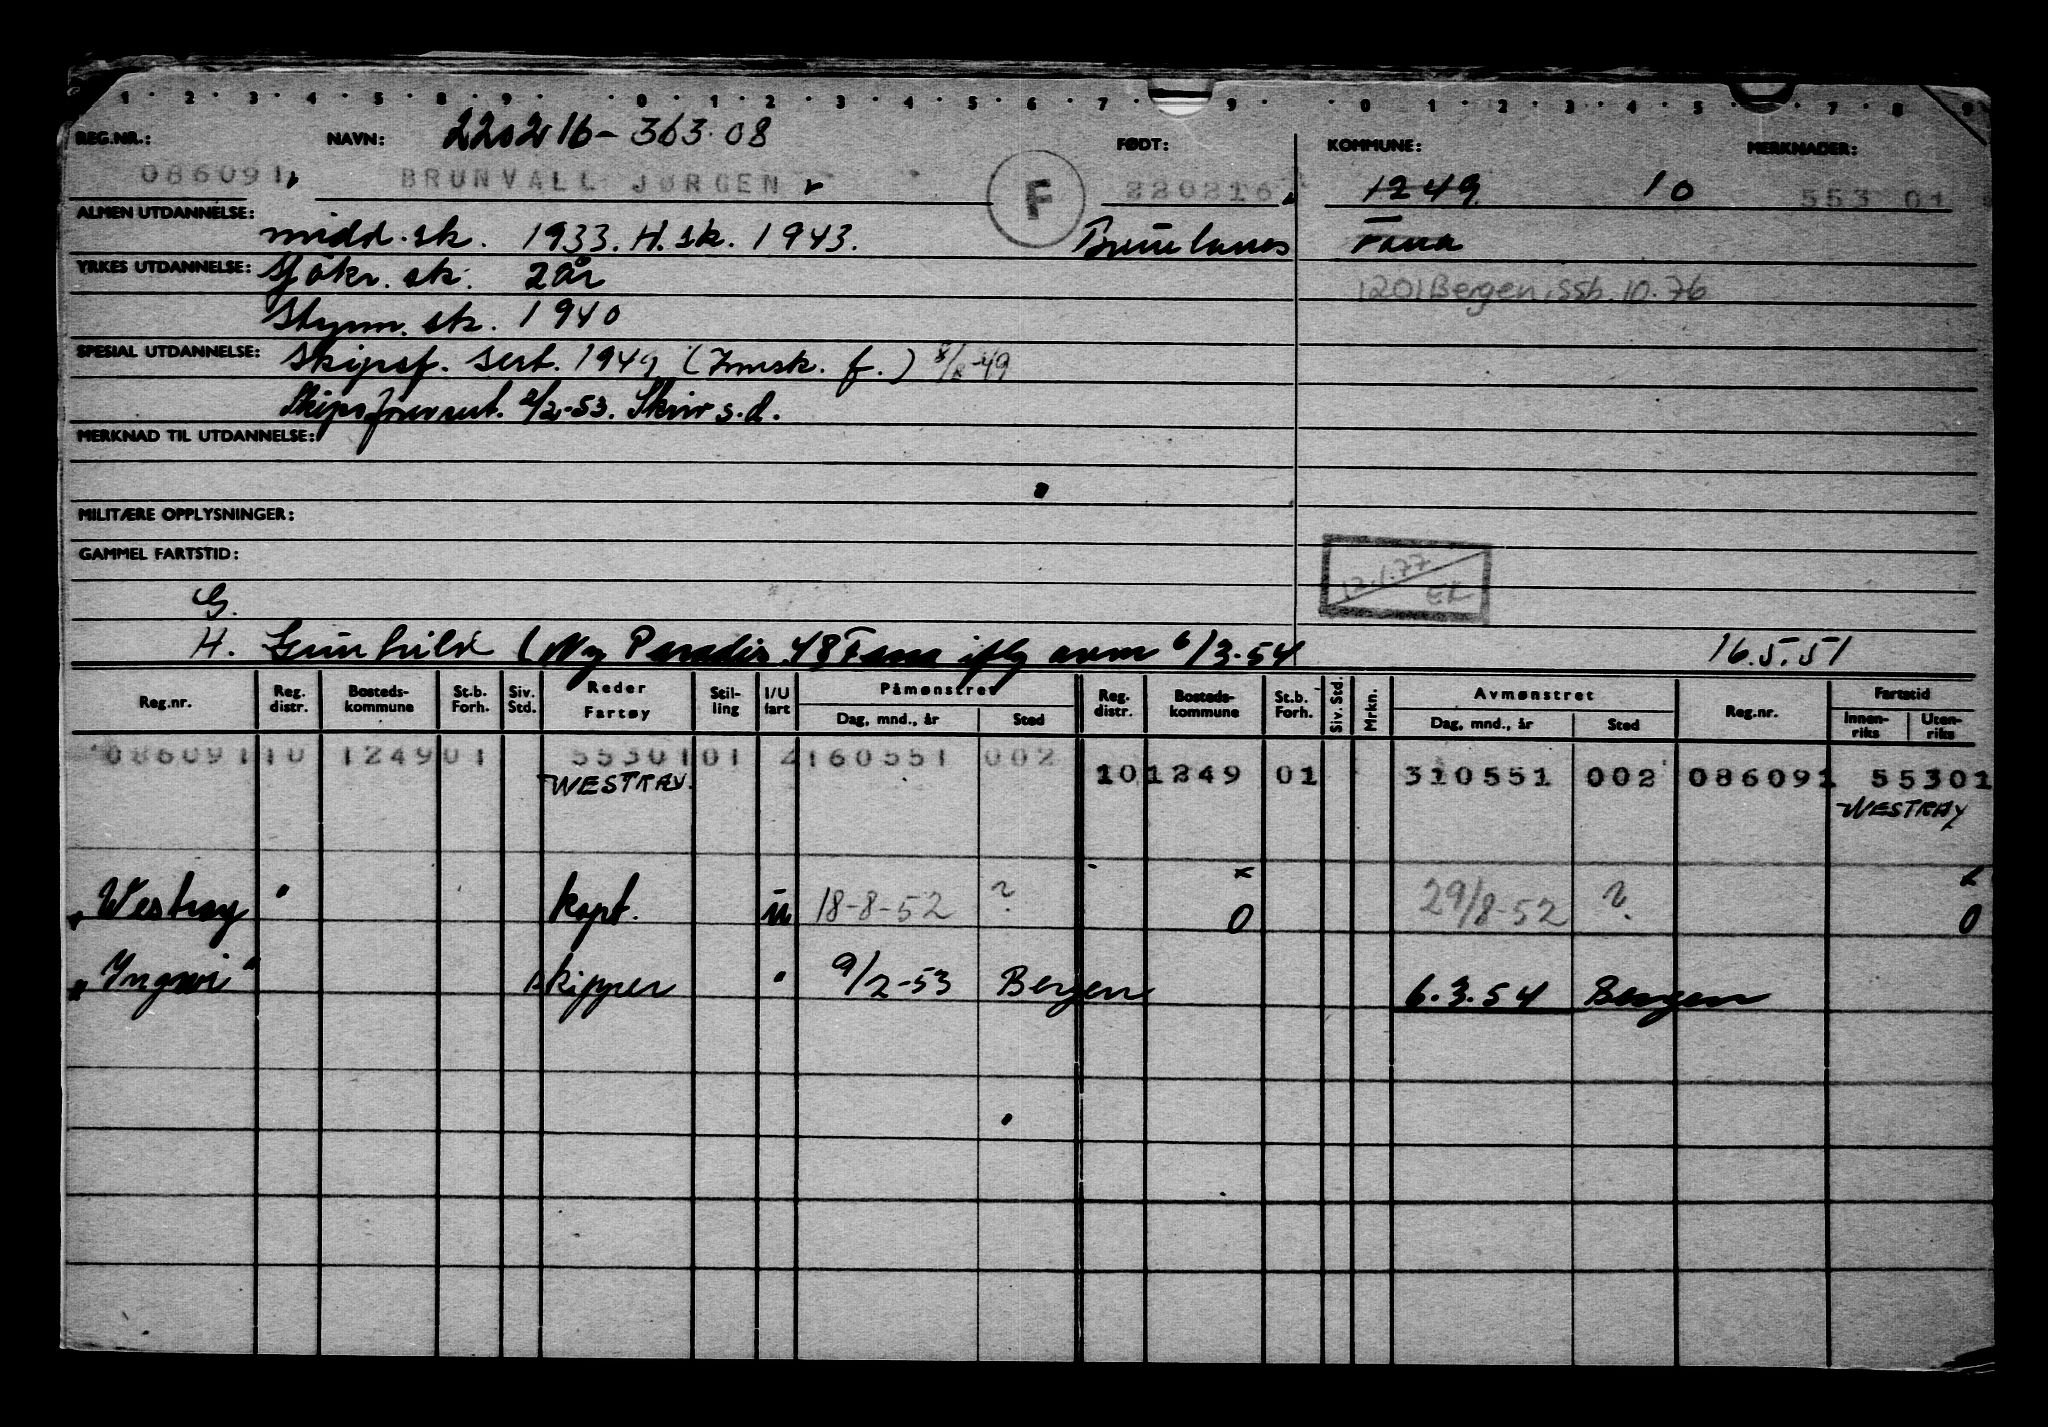 1 2 3 4 5 8 9 0 1 2 3 4 5 6 7 9 0 1 2 3 4 5 7 8 9
REG.NR.: NAVN: 220216-363.08 FØDT: KOMMUNE: MERKNADER:
086091 BRUNVALL JØRGEN F 220216 1249 10 553 01
ALMEN UTDANNELSE: midd.sk. 1933. H.sk. 1943. Brunlanes Fana
YRKES UTDANNELSE: Sjökr. sk. 2 år 1201 Bergen, ssb. 10.76
Styrm. sk. 1940
SPESIAL UTDANNELSE: Skipsf. sert. 1949 (Innsk. f.)
Skipsförersert. 2/2-53. Skriv s.d.
MERKNAD TIL UTDANNELSE:
MILITÆRE OPPLYSNINGER:
GAMMEL FARTSTID:
12.1.77
EL
G.
H. Gunhild (Ny Paradis 48 Fana iflg avm 6/3.54 16.5.51
Reg.nr. Reg. distr. Bosteds- kommune St.b. Forh. Siv. Std. Reder Fartøy Stil- ling I/U fart Påmønstret Dag, mnd., år Sted Reg. distr. Bosteds- kommune St.b. Forh. Siv. Std. Mrkn. Avmønstret Dag, mnd., år Sted Reg.nr. Fartstid Innen- riks Uten- riks
086091 10 1249 01 55301 01 2 160551 002
WESTRAY. 10 1249 01 310551 002 086091 55301
WESTRAY
"Westray" kapt. u 18-8-52 ? x 0 29/8-52 ? x 0
"Ingwi" skipper " 9/2-53 Bergen 6.3.54 Bergen